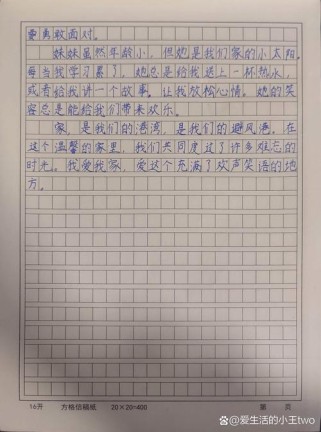 要勇敢面对。
妹妹虽然年龄小，但她是我们家的小太阳。
每当我学习累了，她总是给我递上一杯热水，
或者给我讲一个故事。让我放松心情。她的笑
容总是能给我们带来欢乐。
家，是我们的港湾，是我们的避风港。在
这个温馨的家里，我们共同度过了许多难忘的
时光。我爱我家，爱这个充满了欢声笑语的地
方。
16开 方格信稿纸 20×20=400 第 页
@爱生活的小王two